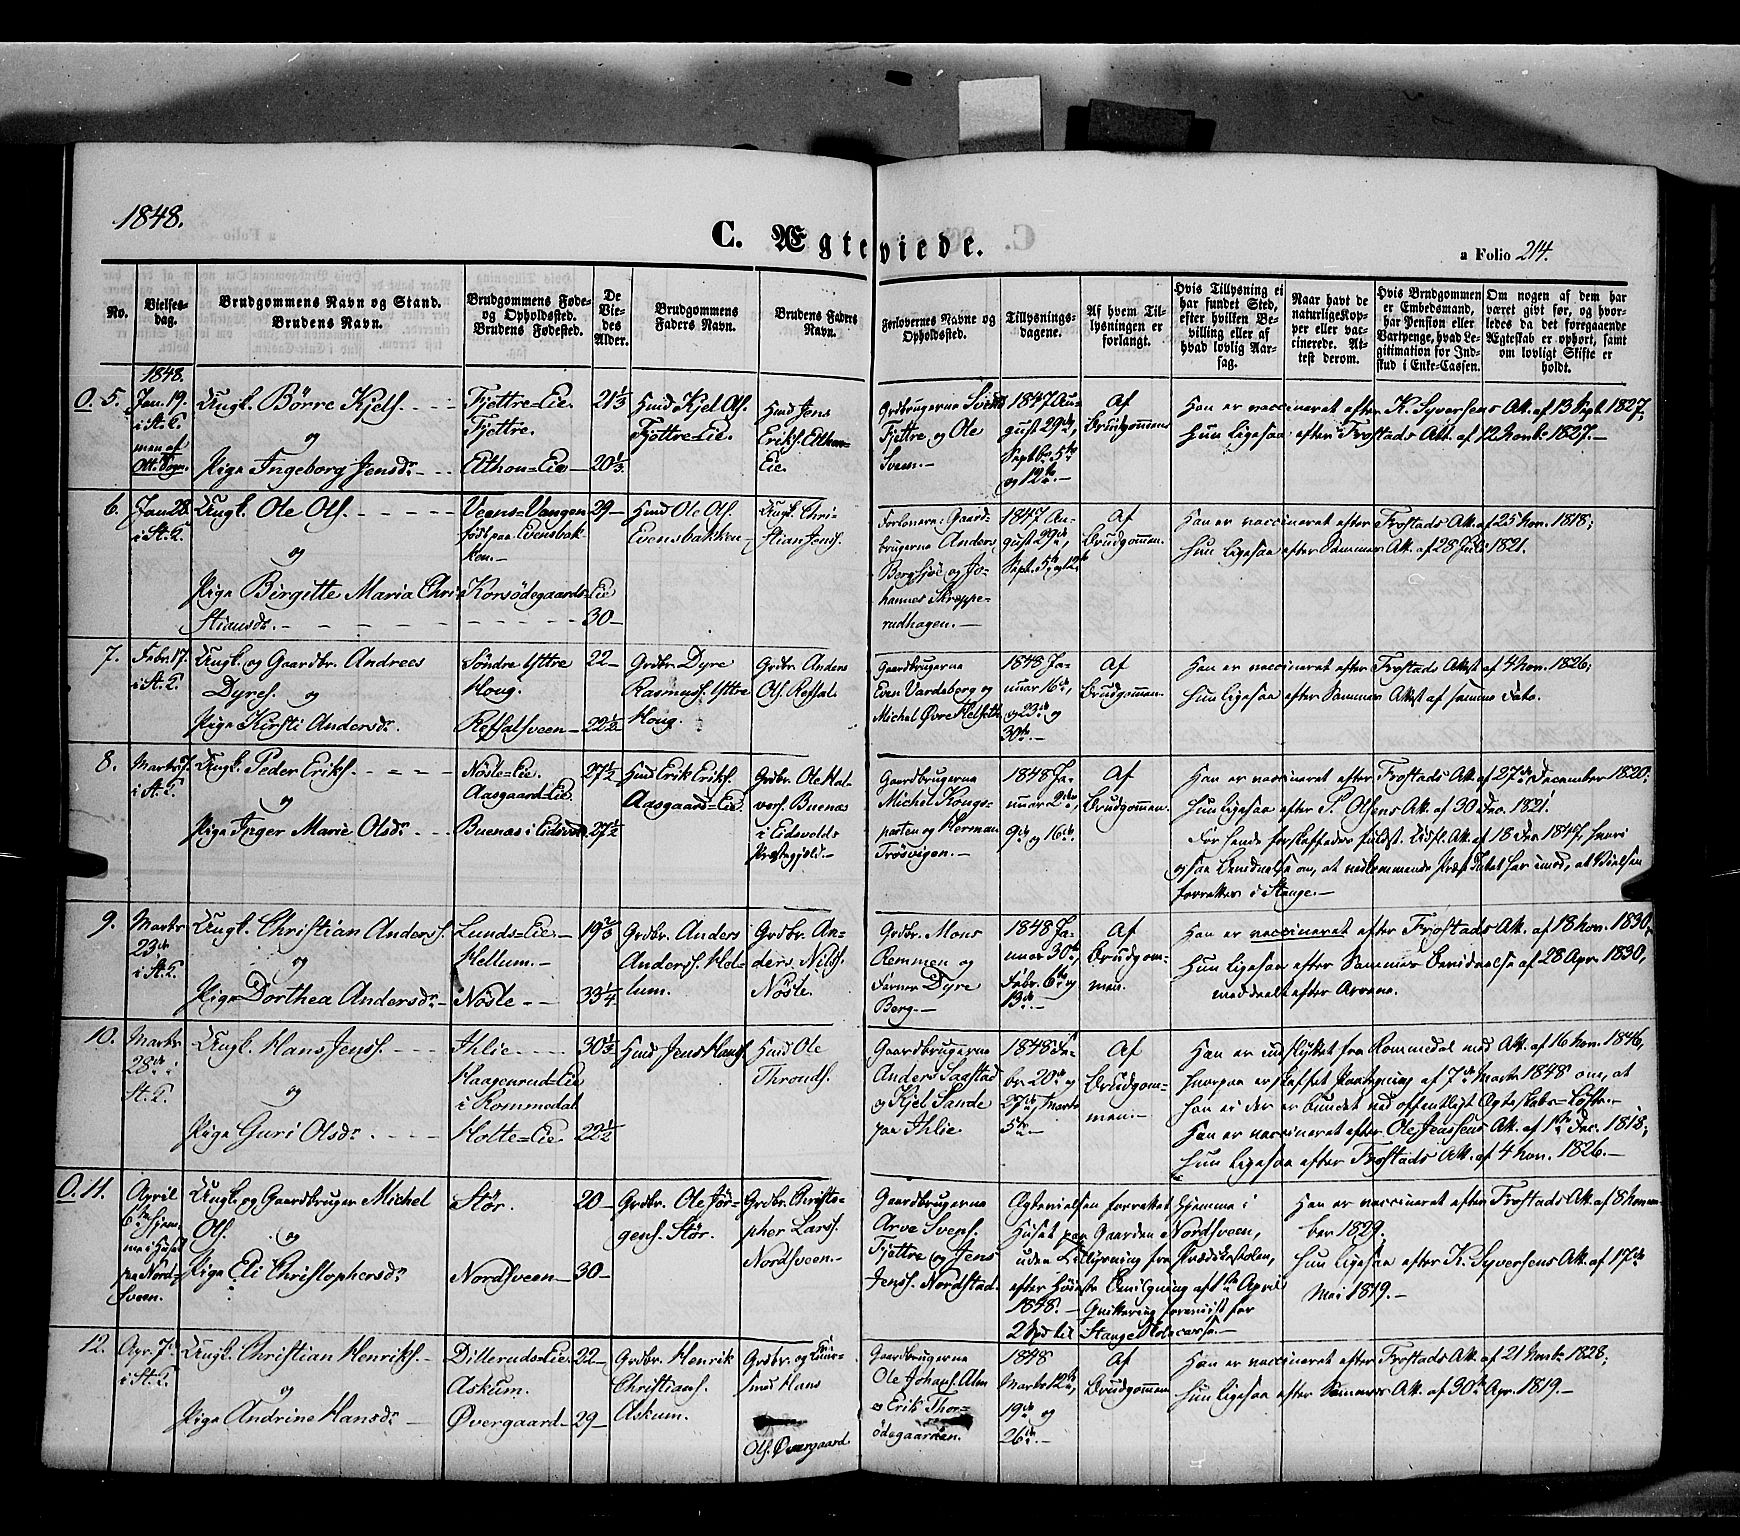 1848.
C. Ægteviede.
a Folio 214.
No.
Vielses-
dag.
Brudgommens Navn og Stand.
Brudens Navn.
Brudgommens Føde-
og Opholdssted.
Brudens Fødested.
De
Vie-
des
Alder.
Brudgommens
Faders Navn.
Brudens Faders
Navn.
Forlovernes Navne og
Opholdssted.
Tillysnings-
dagene.
Af hvem Til-
lysningen er
forlangt.
Hvis Tillysning ei
har fundet Sted,
efter hvilken Be-
villing eller af
hvad lovlig Aar-
sag.
Naar havt de
naturlige Kop-
per eller vac-
cinerede. At-
test derom.
Hvis Brudgommen
er Embedsmand,
har Pension eller
Vartpenge, hvad Le-
gitimation for Ind-
skud i Enke-Cassen.
Om nogen af dem har
været gift før, og hvor-
ledes da det foregaaende
Ægteskab er ophørt, samt
om lovligt Skifte er
holdt.
1848.
O. 5.
Jan. 19.
i St. K.
Ott. Sogn.
Ungk. Børre Kjels.
og
Pige Ingeborg Jensdr.
Fjettre-Eie.
Fjettre.
Elthon-Eie
21⅓
20⅓
Huusmd Kjel Ols.
Fjettre-Eie.
Huusmd Jens
Eriks. Elthon-
Eie.
Grdbrugerne Svend
Fjettre og Ole
Sveen.
1847 Au-
gust 29de,
Septbr. 5te
og 12te.
Af
Brudgommen
Han er vaccineret efter K. Syversens Att. af 13 Sept. 1827;
Hun ligesaa efter Frostads Att. af 12 Novbr. 1827.
6.
Jan 28.
i St. K.
Ungk. Ole Ols.
og
Pige Birgitte Maria Chri-
stiansdr.
Veens-Vangen
født paa Evensbak-
ken.
Korsødegaards-Eie
29
30
Huusmd Ole Ols.
Evensbakken
Ungk. Chri-
stian Jens.
Forlovere: Gaard-
brugerne Anders
Bergsjøe og Jo-
hannes Skreppe-
rudhagen.
1847 Au-
gust 29de,
Sept. 5te og 12te
Af
Brudgommen.
Han er vaccineret efter Frostads Att. af 25 Nov. 1818;
Hun ligesaa efter Sammes Att. af 28 Juli 1821.
7.
Febr. 17.
i St. K.
Ungk. og Gaardbr. Andreas
Dyres. og
Pige Kirsti Andersdr.
Søndre Yttre
Houg.
Refsalsveen
22
22½
Grdbr. Dyre
Rasmuss. Yttre
Houg.
Grdbr. Anders
Ols. Refsal
Gaardbrugerne
Even Vardeberg og
Michel Øvre Helseth
1848 Ja-
nuar 16de,
og 23de og
30te.
Af
Brudgommen.
Han er vaccineret efter Frostads Attest af 4 Nov. 1826;
Hun ligesaa efter Sammes Attest af samme Dato.
8.
Marts 7.
i St. K.
Ungk. Peder Eriks.
og
Pige Inger Marie Olsdr.
Nøsle-Eie.
Aasgaard-Eie.
Buenæs i Eidsvold
27½
27½
Huusmd Erik Eriks.
Aasgaard-Eie.
Grdbr. Ole Hal-
vors. Buenæs
i Eidsvolds
Præstegjeld.
Gaardbrugerne
Michel Kongs-
parten og Herman
Trøsvigen.
1848 Ja-
nuar 2den,
9de og 16de
Af
Brudgommen.
Han er vaccineret efter Frostads Att. af 27de December 1820;
Hun ligesaa efter P. Olsens Att. af 30 Dec. 1821.
forrettes i Stange.
9.
Marts
23de
i St. K.
Ungk. Christian Anders.
og
Pige Dorthea Andersdr.
Lunds-Eie
Hellum.
Nøsle
19⅔
33¼
Grdbr. Anders
Anderss. Hel-
lum.
Grdbr. An-
ders. Nils.
Nøsle.
Grdbr. Mons
Remmen og
Farver Dyre
Berg.
1848 Ja-
nuar 30te,
Febr. 6te og
13de.
Af
Brudgom-
men.
Han er vaccineret efter Frostads Att. af 18 Nov. 1830,
Hun ligesaa efter Sammes Bevidnelse af 28 Apr. 1830,
meddeelt efter Arvene.
10.
Marts
28de i
St. K.
Ungk. Hans Jens.
og
Pige Guri Olsdr.
Ihlie
Haagenrud-Eie
i Rommedal
Holte-Eie
30⅓
22½
Huusmd Jens Hans.
Huusmd Ole
Thronds.
Gaardbrugerne
Anders Saastad
og Kjel Sande
paa Ihlie.
1848 Fe-
br. 20de og
27de, Marts
5te.
Af
Brudgom-
men.
Han er indflyttet fra Rommedal med Att. af 16 Nov. 1846,
hvorpaa er skaffet Paategning af 7de Marts 1848 om, at
han ei der er bundet ved offentligt Ægteskabs-Løfte.
Han er vaccineret efter Ole Jenssens Att. af 1ste Dec. 1818;
Hun ligesaa efter Frostads Att. af 4 Nov. 1826.
O. 11.
April
6te hjem-
me i Huset
paa Nord-
sveen.
Ungk. og Gaardbruger Michel
Ols. og
Pige Eli Christophersdr.
Stør.
Nordsveen
20
30
Grdbr. Ole Jør-
gens. Stør.
Grdbr. Christo-
pher Larss.
Nordsveen
Gaardbrugerne
Arve Svens.
Fjettre og Jens
Jens. Nordstad.
Ægtevielsen forrettet hjemme i
Huset paa Gaarden Nordsveen,
uden Tillysning fra Prædikestolen,
efter høieste Bevilgning af 1ste April
1848. Qvittering foreviist for
2 Spd til Stange Skolecasse.
Han er vaccineret efter Frostads Att. af 8 Novem-
ber 1829.
Hun ligesaa efter K. Syversens Att. af 17de
Mai 1819.
12.
Apr. 7de
i St. K.
Ungk. Christian Henriks.
og
Pige Andrine Hansdr.
Dillerud-Eie
Askum.
Øvergaard
22
29
Grdbr. Henrik
Christians.
Askum.
Grdbr. og
Hans
Ols. Øvergaard
Gaardbrugerne
Ole Johans. Alm
og Erik Thor-
ødegaarden.
1848
Marts 12te,
19de og
26de.
Af
Brudgommen
Han er vaccineret efter Frostads Att. af 21 Novbr. 1828;
Hun ligesaa efter Sammes Att. af 30te Apr. 1819.